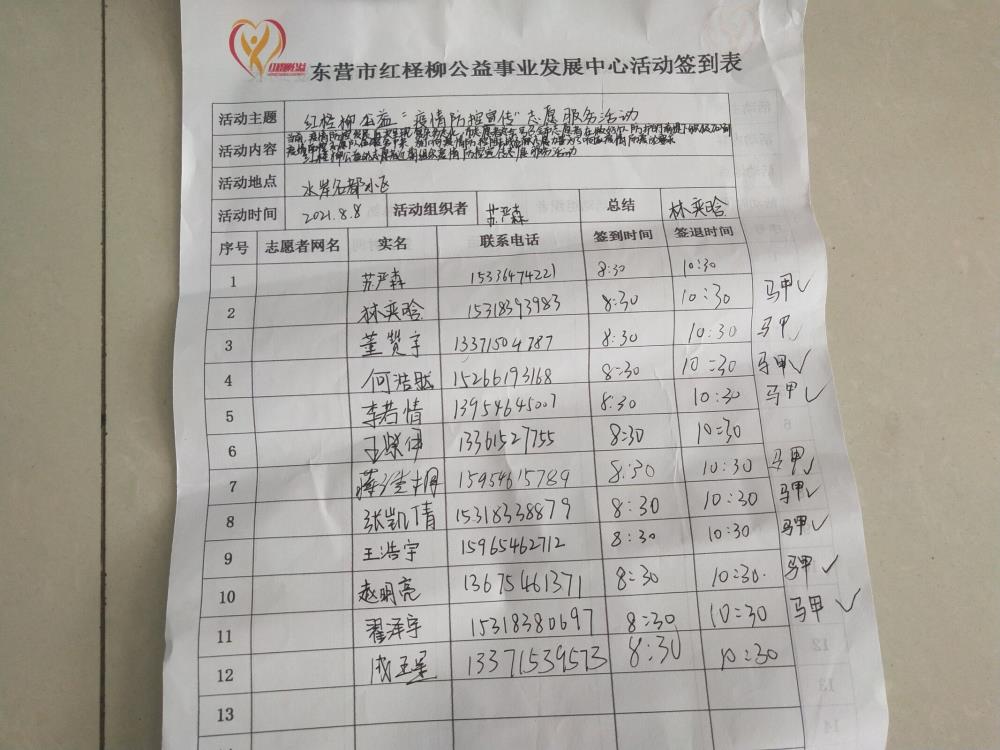 红柽柳公益
东营市红柽柳公益事业发展中心活动签到表
活动主题 红柽柳公益“疫情防控宣传”志愿服务活动
活动内容
红柽柳公益的志愿者 疫情防控宣传志愿服务活动
活动地点 水岸名都小区
活动时间 2021.8.8 活动组织者 苏严森 总结 林奕晗
序号 志愿者网名 实名 联系电话 签到时间 签退时间
1 苏严森 15336474221 8:30 10:30
2 林奕晗 15318393983 8:30 10:30 马甲✓
3 董赞宇 13371504787 8:30 10:30 马甲
4 何浩然 15266193168 8:30 10:30 马甲✓
5 李若情 13954645007 8:30 10:30 马甲✓
6 13361527755 8:30 10:30
7 15954615789 8:30 10:30 马甲✓
8 张凯倩 15318338879 8:30 10:30 马甲✓
9 王浩宇 15965462712 8:30 10:30 马甲✓
10 赵明亮 13675461371 8:30 10:30. 马甲✓
11 翟泽宇 15318380697 8:30 10:30 马甲✓
12 成玉星 13371539573 8:30 10:30
13